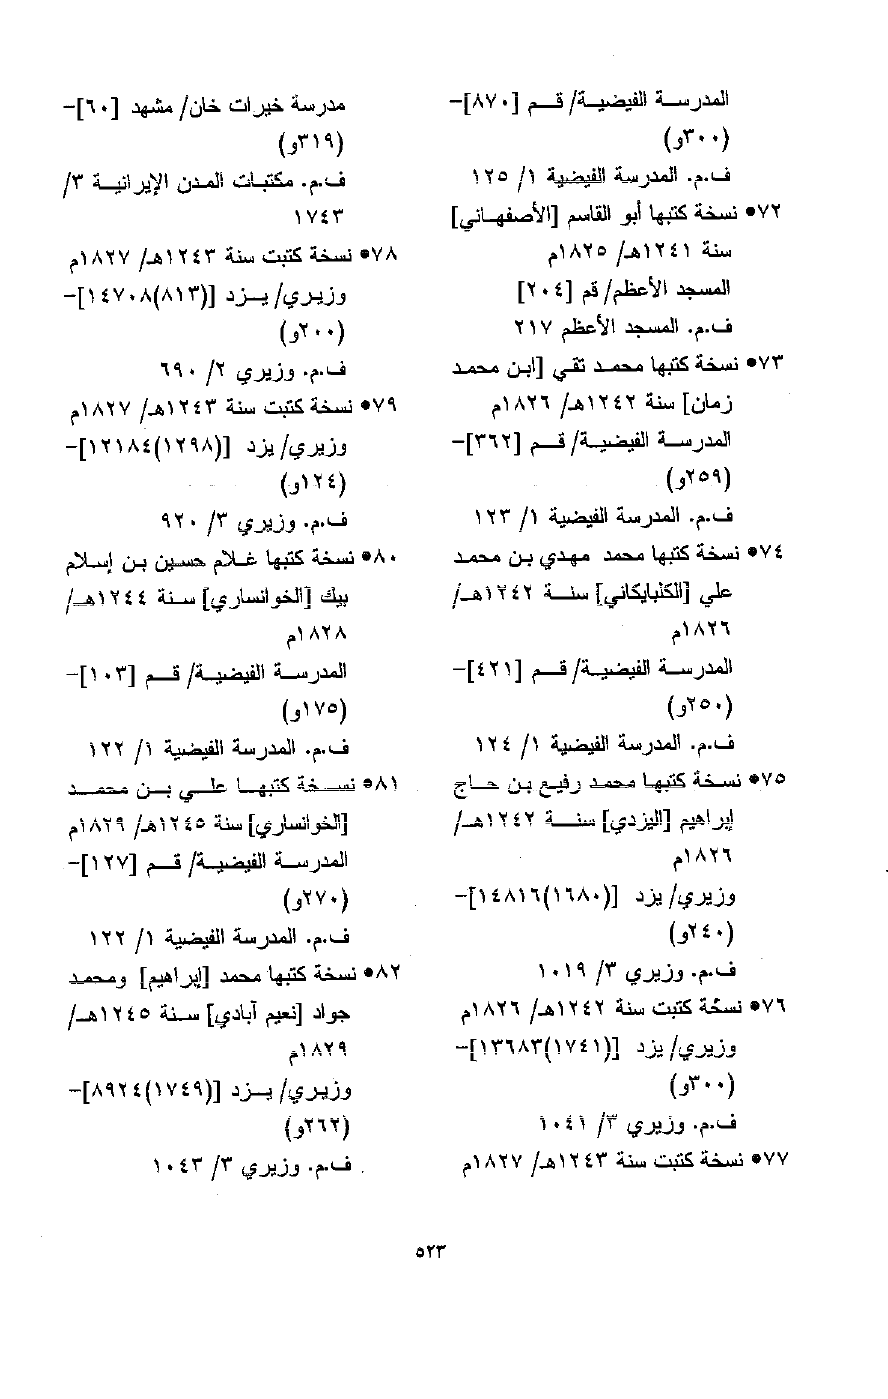 المدرسـة الفيضيـة/ قـم [٨٧٠]–
(٣٠٠و)
ف.م. المدرسة الفيضية ١/ ١٢٥
٧٢• نسخة كتبها أبو القاسم [الأصفهاني]
سنة ١٢٤١هـ/ ١٨٢٥م
المسجد الأعظم/ قم [٢٠٤]
ف.م. المسجد الأعظم ٢١٧
٧٣• نسخة كتبها محمد تقي [ابن محمد
زمان] سنة ١٢٤٢هـ/ ١٨٢٦م
المدرسـة الفيضيـة/ قـم [٣٦٢]–
(٢٥٩و)
ف.م. المدرسة الفيضية ١/ ١٢٣
٧٤• نسخة كتبها محمد مهدي بن محمد
علي [الكلبايكاني] سنـة ١٢٤٢هـ/
١٨٢٦م
المدرسـة الفيضيـة/ قـم [٤٢١]–
(٢٥٠و)
ف.م. المدرسة الفيضية ١/ ١٢٤
٧٥• نسخة كتبها محمد رفيع بن حاج
إبراهيم [اليزدي] سنـة ١٢٤٢هـ/
١٨٢٦م
وزيري/ يزد [(١٦٨٠)١٤٨١٦]–
(٢٤٠و)
ف.م. وزيري ٣/ ١٠١٩
٧٦• نسخة كتبت سنة ١٢٤٢هـ/ ١٨٢٦م
وزيري/ يزد [(١٧٤١)١٣٦٨٣]–
(٣٠٠و)
ف.م. وزيري ٣/ ١٠٤١
٧٧• نسخة كتبت سنة ١٢٤٣هـ/ ١٨٢٧م
مدرسة خيرات خان/ مشهد [٦٠]–
(٣١٩و)
ف.م. مكتبات المدن الإيرانيـة ٣/
١٧٤٣
٧٨• نسخة كتبت سنة ١٢٤٣هـ/ ١٨٢٧م
وزيري/ يـزد [(٨١٣)١٤٧٠٨]–
(٢٠٠و)
ف.م. وزيري ٢/ ٦٩٠
٧٩• نسخة كتبت سنة ١٢٤٣هـ/ ١٨٢٧م
وزيري/ يزد [(١٢٩٨)١٢١٨٤]–
(١٢٤و)
ف.م. وزيري ٣/ ٩٢٠
٨٠• نسخة كتبها غـلام حسـين بـن إسـلام
بيك [الخوانساري] سـنة ١٢٤٤هـ/
١٨٢٨م
المدرسـة الفيضيـة/ قـم [١٠٣]–
(١٧٥و)
ف.م. المدرسة الفيضية ١/ ١٢٢
٨١• نسـخة كتبهـا علـي بـن محمـد
[الخوانساري] سنة ١٢٤٥هـ/ ١٨٢٩م
المدرسـة الفيضيـة/ قـم [١٢٧]–
(٢٧٠و)
ف.م. المدرسة الفيضية ١/ ١٢٢
٨٢• نسخة كتبها محمد [إبراهيم] ومحمد
جواد [نعيم آبادي] سـنة ١٢٤٥هـ/
١٨٢٩م
وزيري/ يـزد [(١٧٤٩)٨٩٢٤]–
(٢٦٢و)
ف.م. وزيري ٣/ ١٠٤٣
٥٢٣